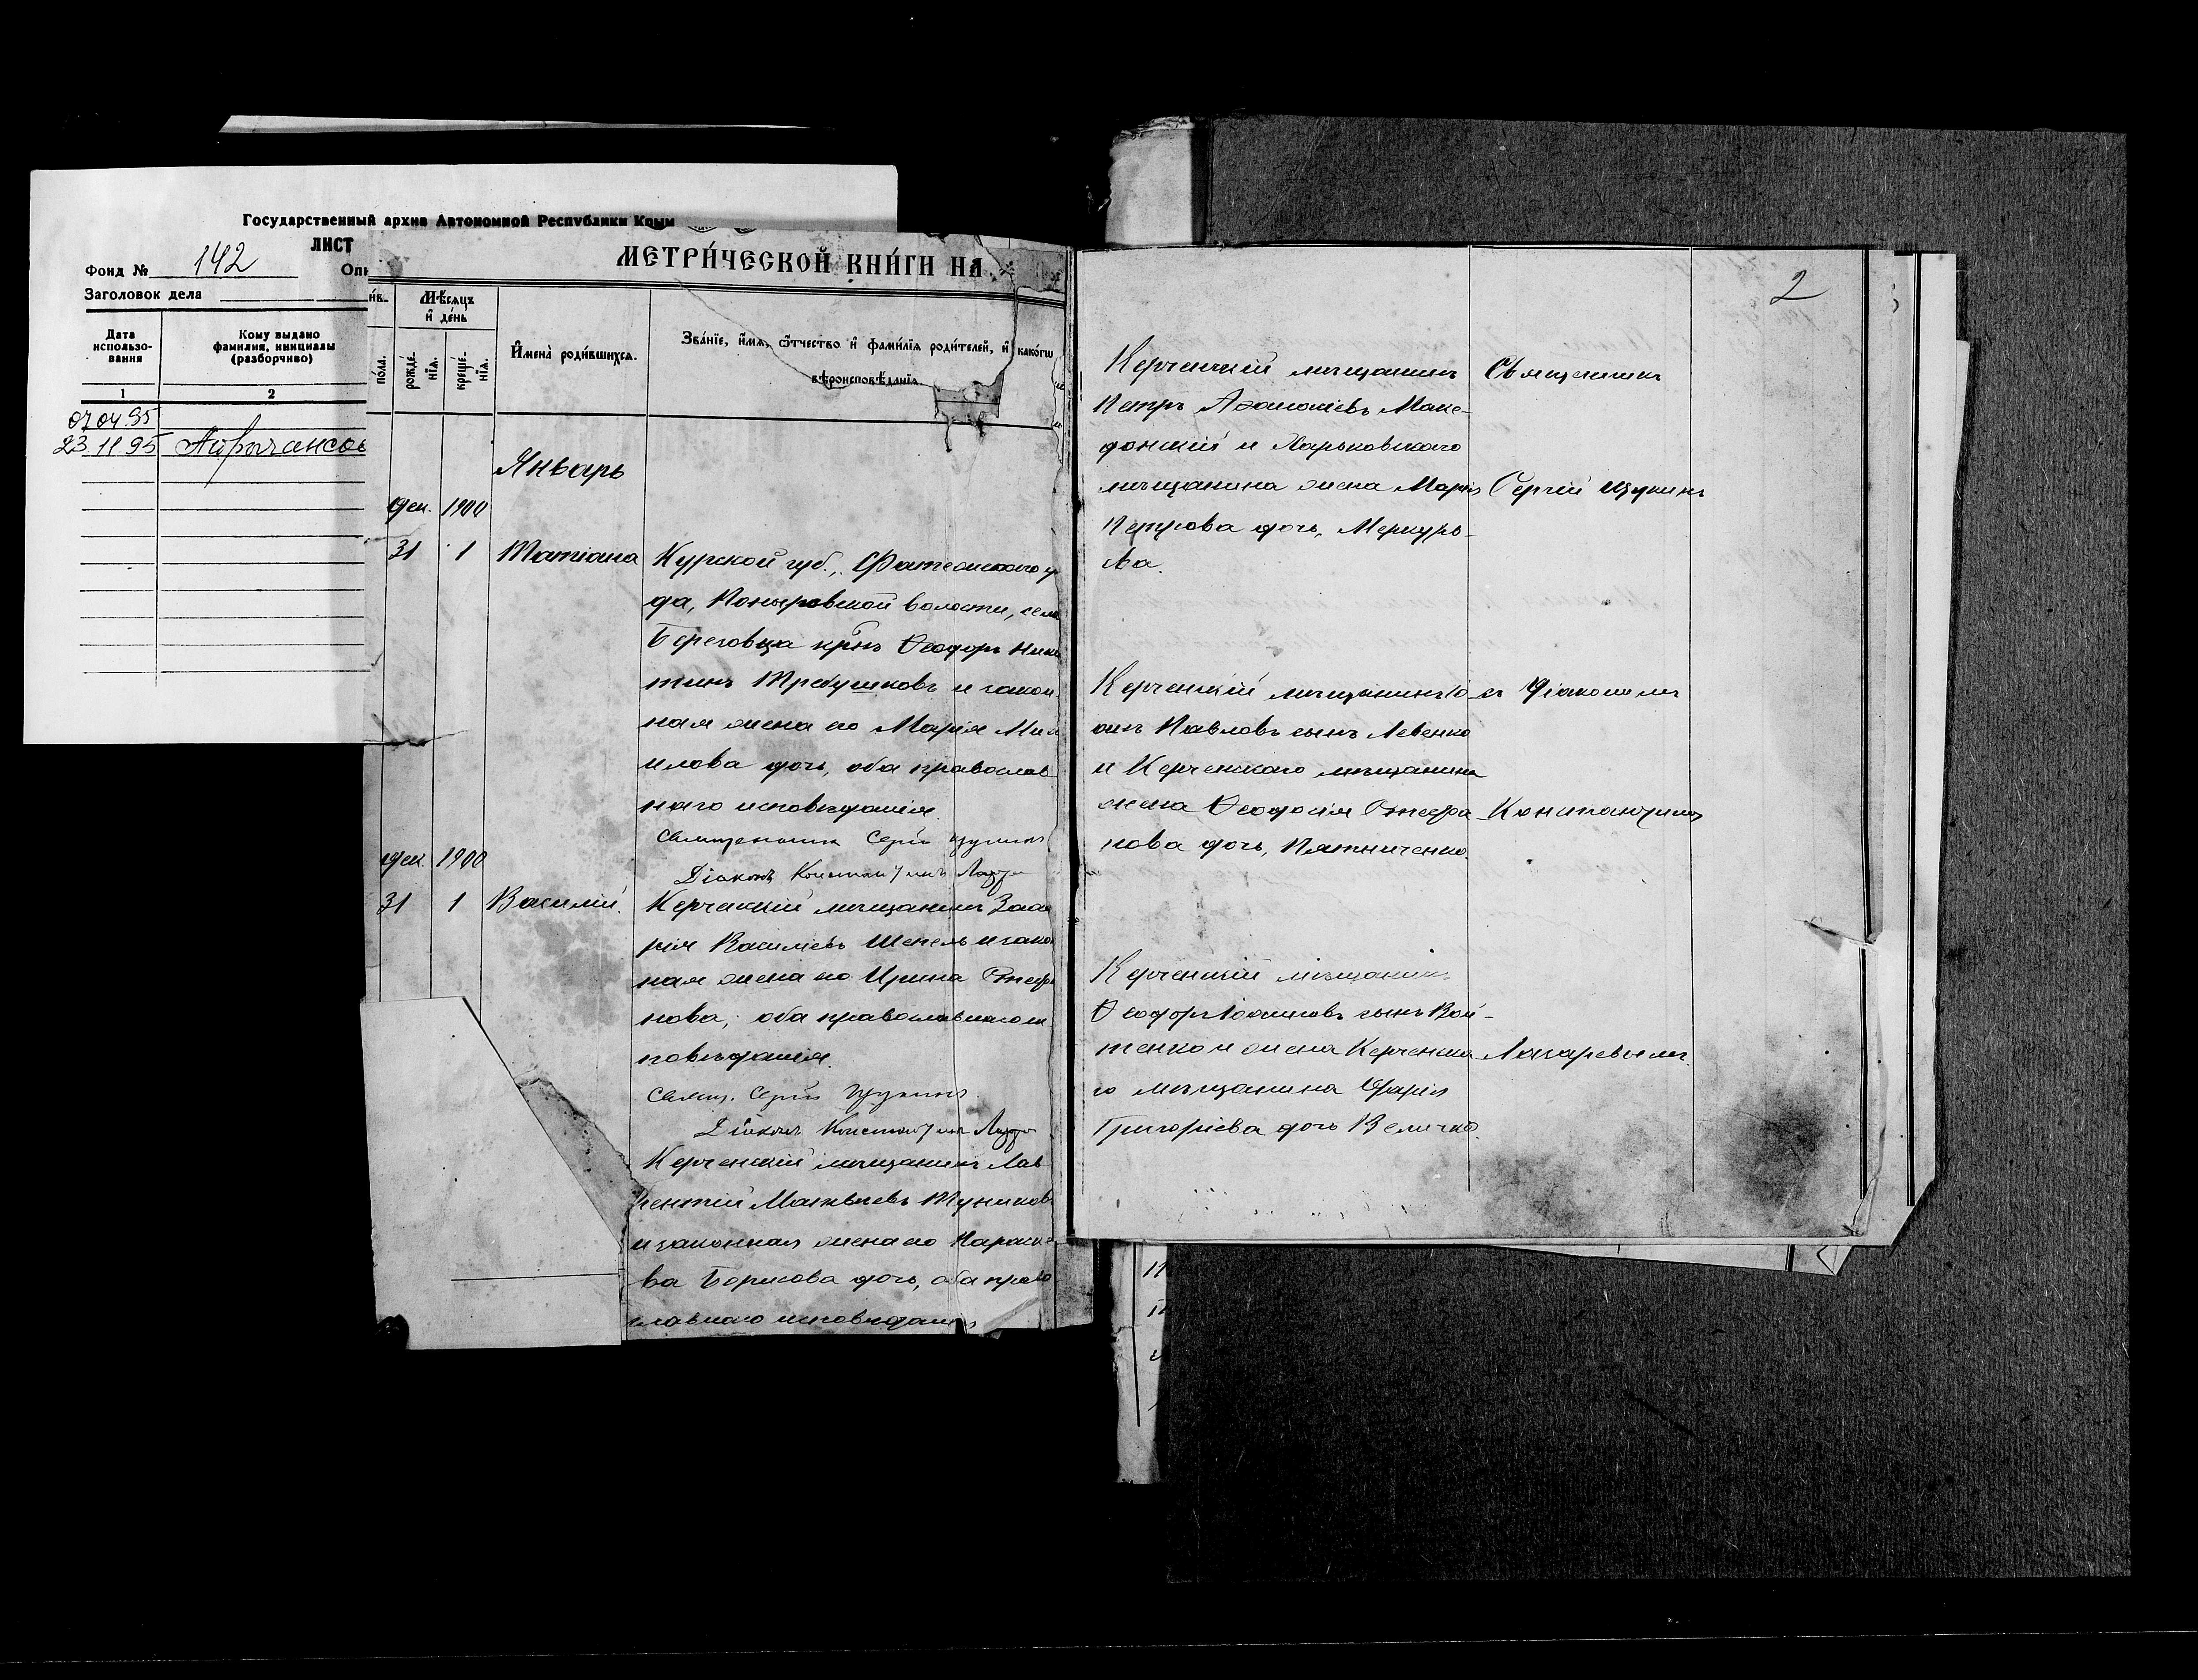 Государственный архив Автономной Республики Крым
ЛИСТ
Фонд № 142
Заголовок дела
Дата использо-вания
Кому выдано фамилия, инициалы (разборчиво)
1 2
07 04 95
23 11 95
МЕТРИ́ЧЕСКОЙ КНИ́ГИ НА
Мѣсяцъ и день
пола.
рожде́нїя.
креще́нїя.
Имена родившихся.
Зва́нїе, имя, отчество и фамилїя родителей, и какогω
вѣроисповѣданїя
Январь
дек. 1900
31 1 Татіана
Курской губ., Фатежскаго у
да, Поныровской волости, села
Береговца крнъ Ѳеодоръ Ники
тинъ Требушковъ и закон
ная жена его Марія Ми
илова дочь, оба православ
наго исповѣданія.
Священникъ Сергій Щукинъ
Діаконъ Константинъ
дек. 1900
31 1 Василій.
Керченскій мѣщанинъ Заха
рія Василіевъ Шепель и закон
ная жена его Ирина Стефа
нова, оба православнаго ис
повѣданія.
Свящ. Сергій Щукинъ
Діаконъ Константинъ
Керченскій мѣщанинъ Лав
рентій Матвѣевъ Туников
и законная жена его Параске
ва Борисова дочь, оба право
славнаго исповѣданія
2
Керченскій мѣщанинъ
Петръ Аѳанасіевъ Маке-
донскій и Харьковскаго
мѣщанина жена Марія
Петрова дочь, Меркурь-
ева.
Священникъ
Сергій Щукинъ
Керченскій мѣщанинъ Іо-
анъ Павловъ сынъ Левенко
и Керченскаго мѣщанина
жена Ѳеодосія Стефа-
нова дочь, Пятниченко.
съ Діакономъ
Константиномъ
Керченскій мѣщанинъ
Ѳеодоръ Іоанновъ сынъ Вой-
тенко и жена Керченска-
го мѣщанина Дарія
Григоріева дочь Величко.
Лазаревымъ.